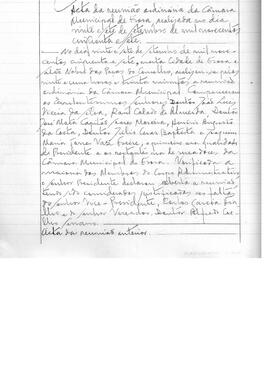 Acta da reunião ordinária da Câmara
Municipal de Evora, realizada no dia
vinte e sete de Setembro de mil novecentos
cincoenta e sete.
No dia vinte e sete de Setembro de mil nove-
centos cincoenta e sete, nesta Cidade de Evora e
sala Nobre dos Paços do Concelho,
ordinária da Câmara Municipal. Compareceram
os Excelentíssimos senhores: Doutor João Luis
Vieira da Silva, Raul Calado de Almeida, Doutor
da Costa, Doutor Júlio Cesar Baptista e Joaquim
Maria Freire, o primeiro na qualidade
de Presidente e os restantes de vereadores da
Câmara Municipal de Evora. Verificada a
maioria dos Membros do Corpo Administrativo
o senhor Presidente declarou aberta a reunião
tendo sido consideradas justificadas as faltas
do senhor Vice-Presidente, Carlos Garcia
e do senhor Vereador, Doutor Alfredo
Acta da reunião anterior.